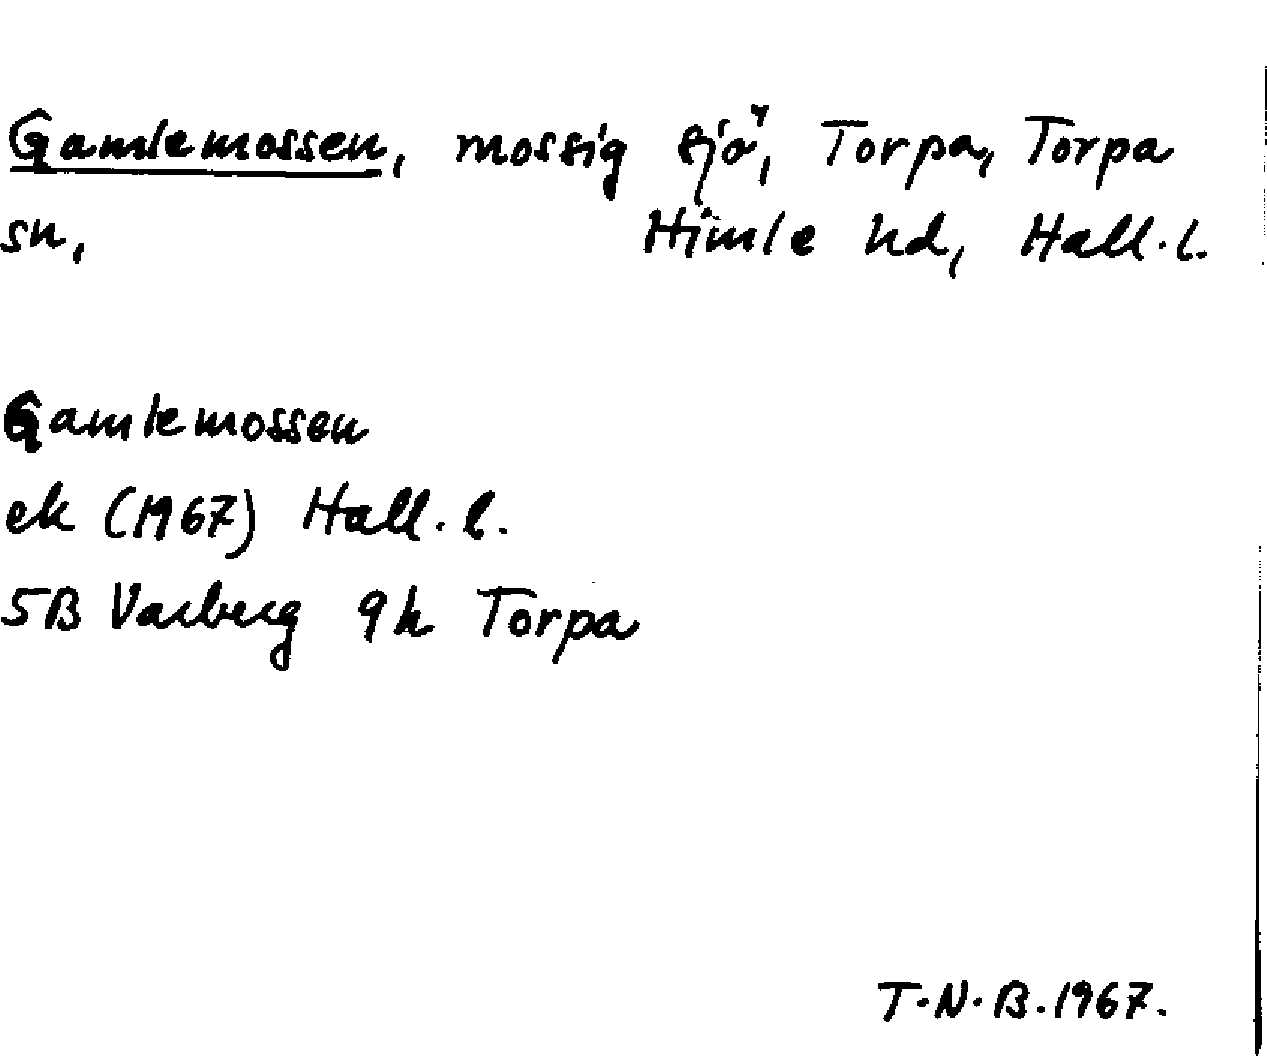 Gamlemossen, mossig sjö, Torpa, Torpa
sn, Himle hd, Hall. l.
Gamlemossen
ek (1967) Hall. l.
5B Varberg 9h Torpa
T.N.B. 1967.